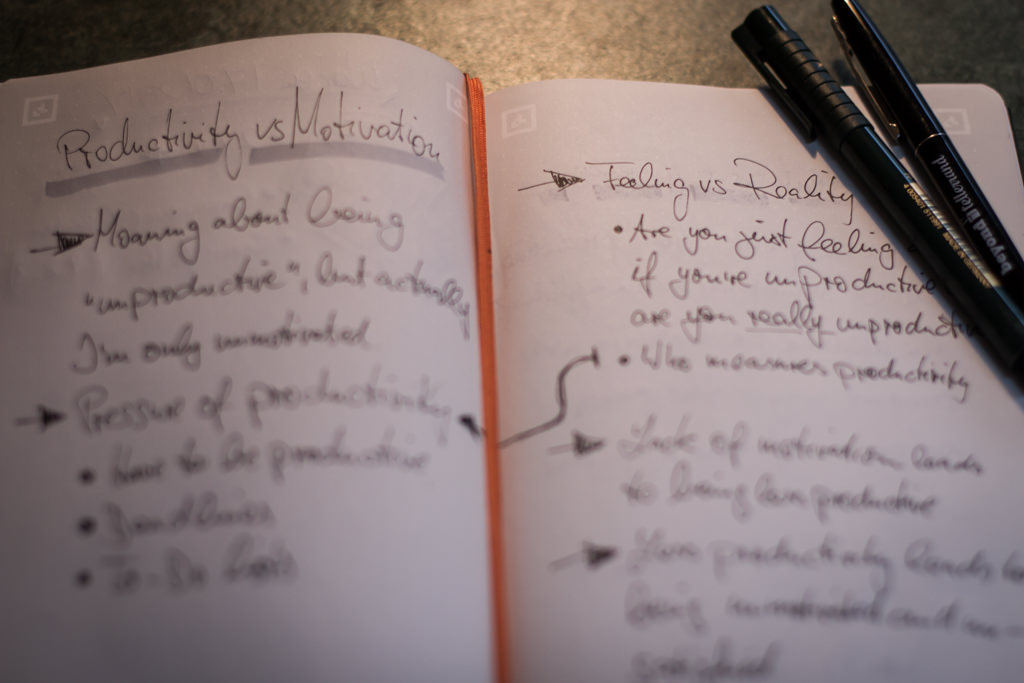 Productivity vs Motivation
Moaning about being
"unproductive", but actually
I'm only unmotivated
Pressure of productivity
Have to be productive
Deadlines
To-Do lists
Feeling vs Reality
Are you just feeling
if you're unproductive
are you really unproductive
Who measures productivity
Lack of motivation leads
to being less productive
Less productivity leads to
being unmotivated and
beyond tellerrand